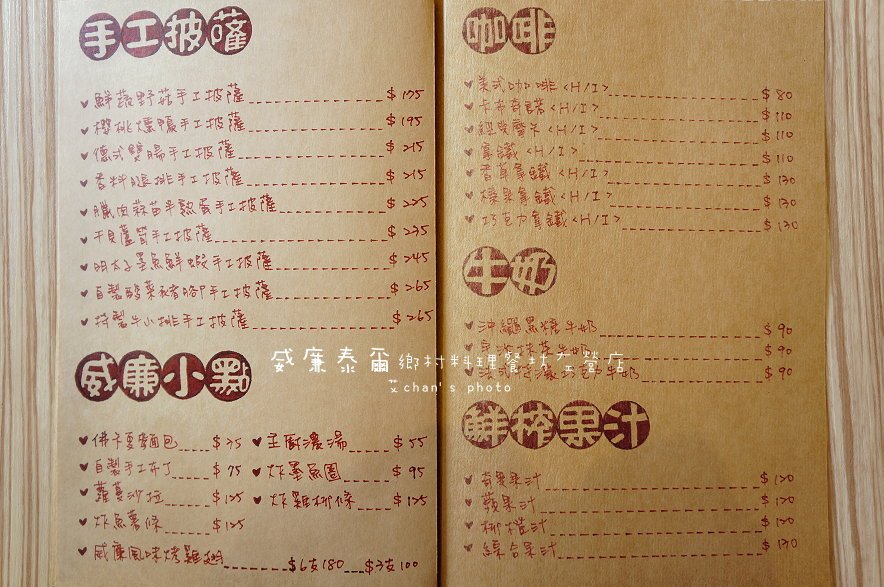 手工披薩
鮮蔬野菇手工披薩 $175
櫻桃燻鴨手工披薩 $195
德式雙腸手工披薩 $215
香料腿排手工披薩 $215
臘肉蒜苗半熟蛋手工披薩 $225
干貝蘆筍手工披薩 $235
明太子墨魚鮮蝦手工披薩 $245
自製酸菜豬腳手工披薩 $265
特製牛小排手工披薩 $265
威廉小點
佛卡夏麵包 $35
自製手工布丁 $75
蘿蔓沙拉 $125
炸魚薯條 $125
威廉風味烤雞翅 $6支180 $3支100
主廚濃湯 $55
炸墨魚圈 $95
炸雞柳條 $125
咖啡
美式咖啡<H/I> $80
卡布奇諾<H/I> $110
經典摩卡<H/I> $110
拿鐵<H/I> $110
香草拿鐵<H/I> $130
榛果拿鐵<H/I> $130
巧克力拿鐵<H/I> $130
牛奶
沖繩黑糖牛奶 $90
牛奶 $90
牛奶 $90
鮮榨果汁
奇異果汁 $120
蘋果汁 $120
柳橙汁 $120
綜合果汁 $130
威廉泰爾鄉村料理餐坊左營店
艾chan's photo